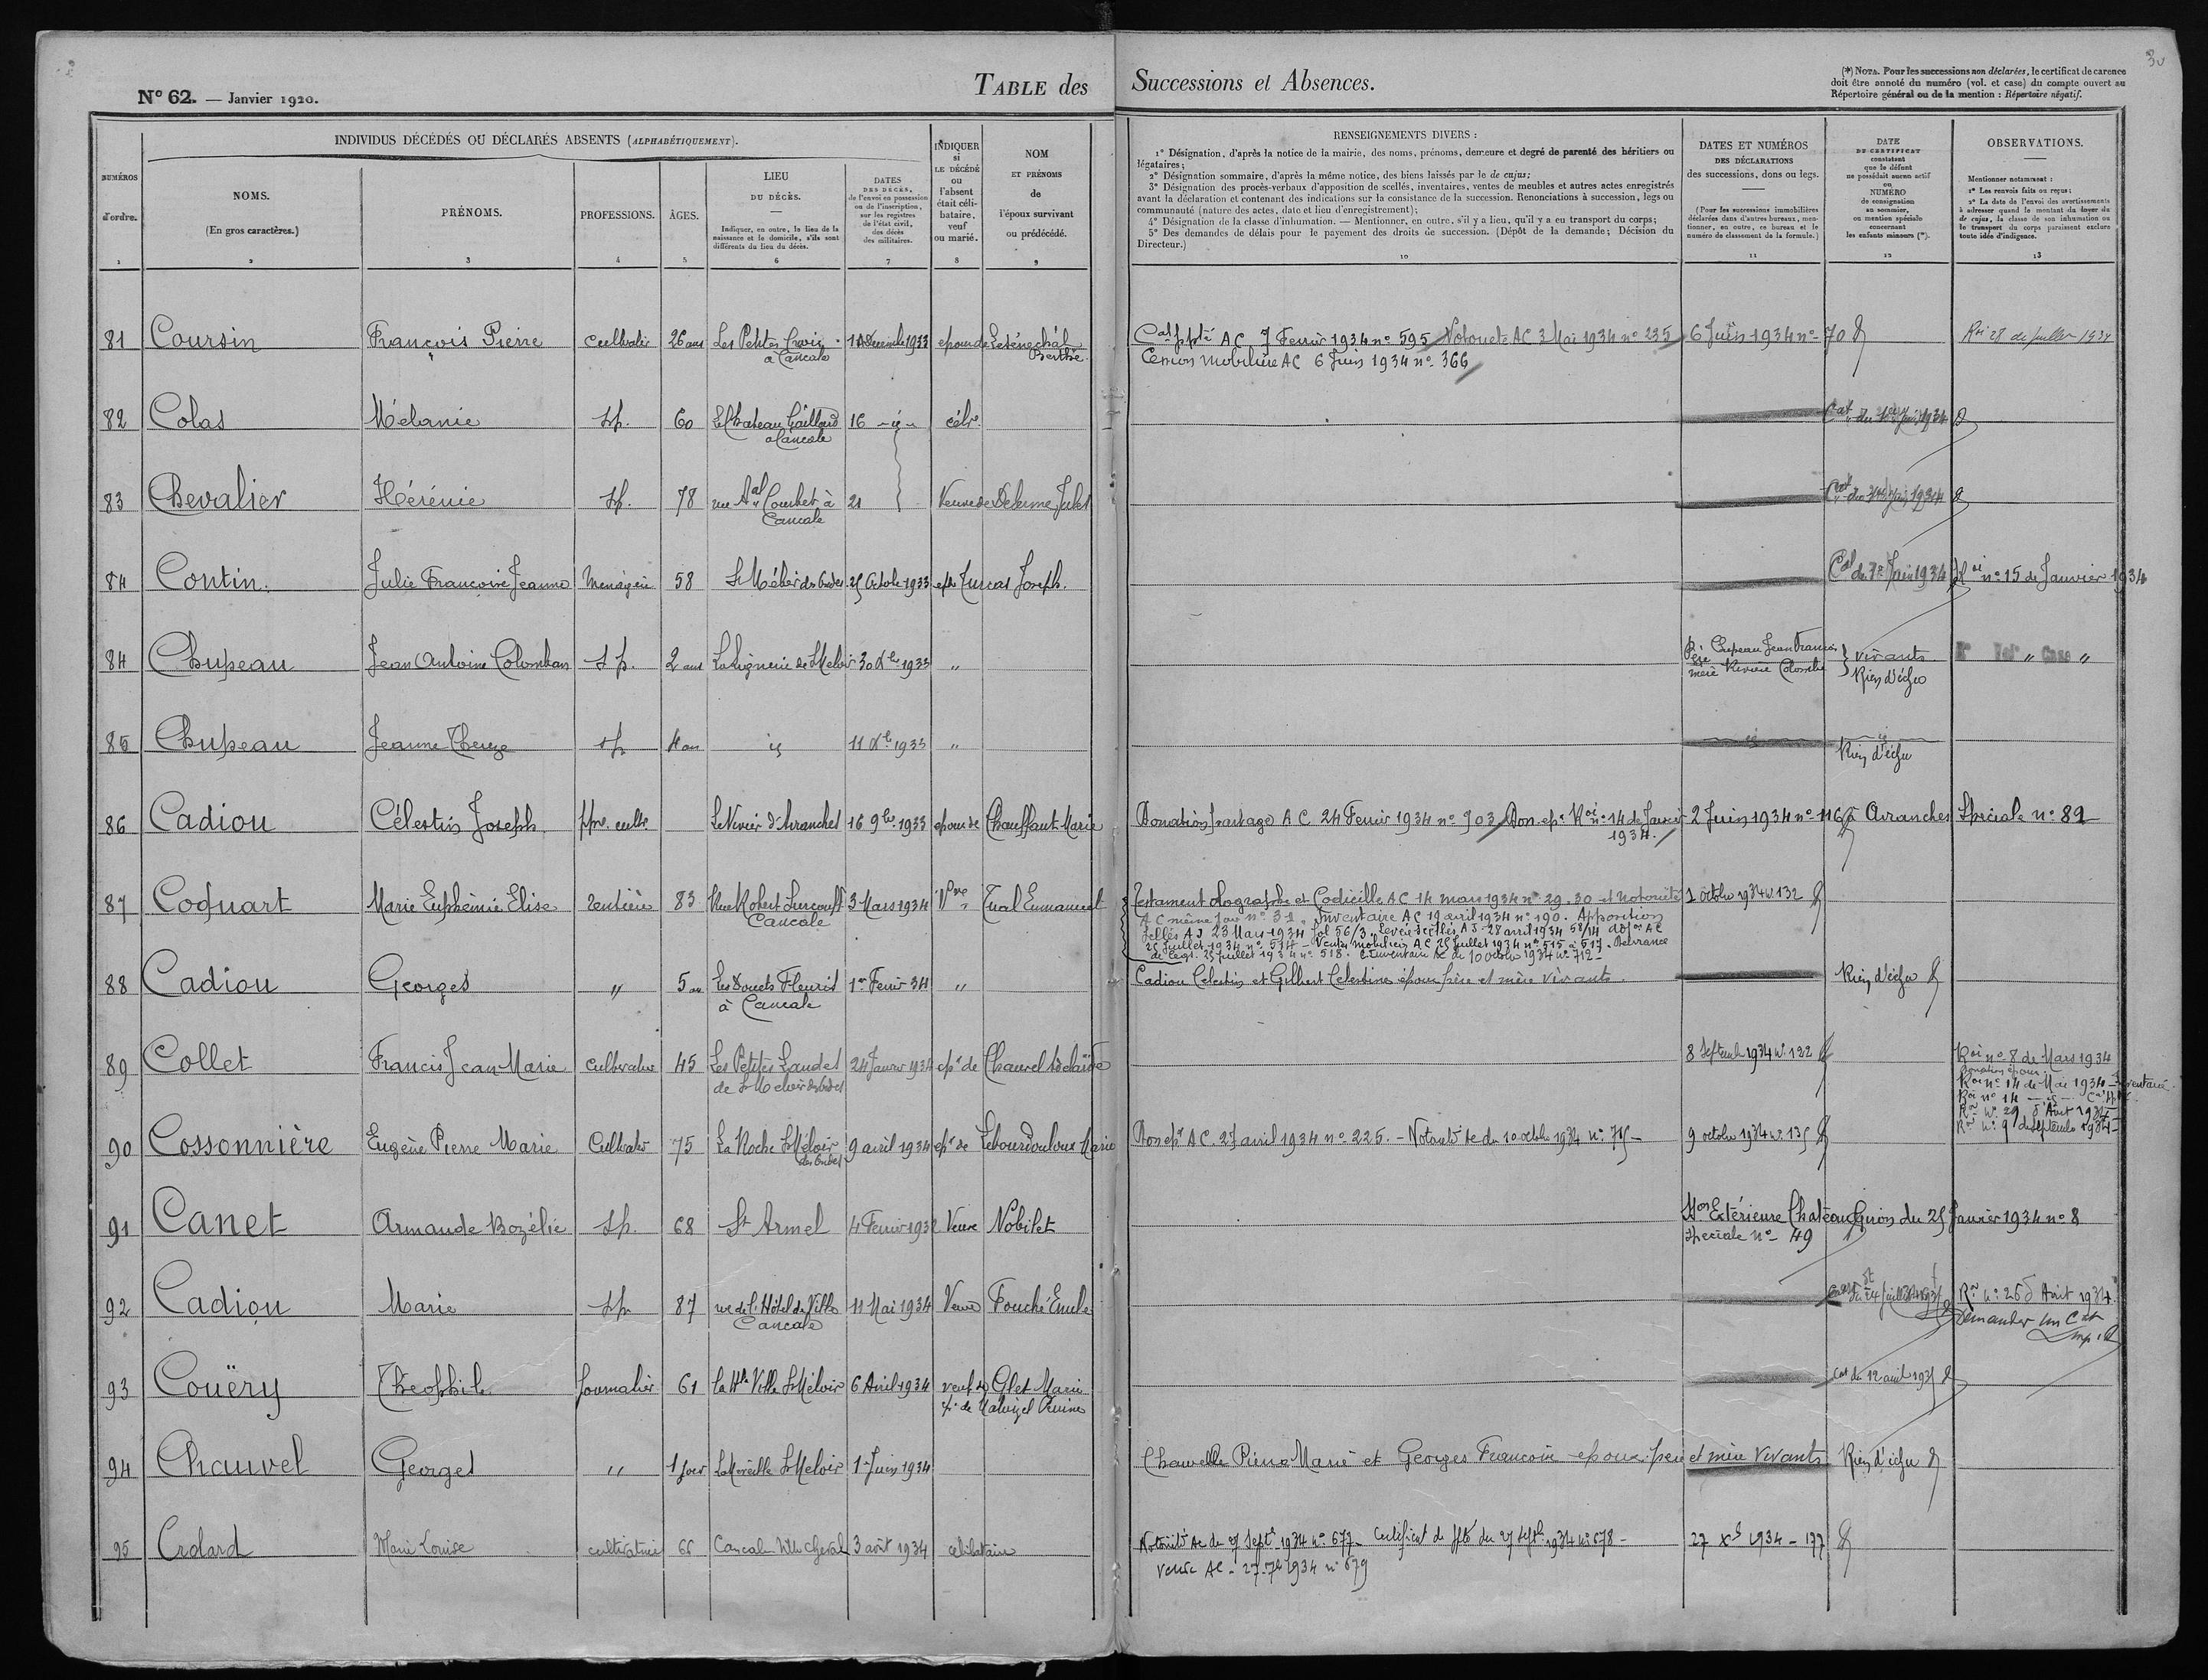 N° 62. — Janvier 1920.
TABLE des Successions et Absences.
30
(*) NOTA. Pour les successions non déclarées, le certificat de carence
doit être annoté du numéro (vol. et case) du compte ouvert au
Répertoire général ou de la mention : Répertoire négatif.
NUMÉROS
d'ordre.
1
INDIVIDUS DÉCÉDÉS OU DÉCLARÉS ABSENTS (ALPHABÉTIQUEMENT).
NOMS.
(En gros caractères.)
2
PRÉNOMS.
3
PROFESSIONS.
4
ÂGES.
5
LIEU
DU DÉCÈS.
Indiquer, en outre, le lieu de la
naissance et le domicile, s'ils sont
différents du lieu du décès.
6
DATES
DES DÉCÈS,
de l'envoi en possession
ou de l'inscription,
sur les registres
de l'état civil,
des décès
des militaires.
7
INDIQUER
si
LE DÉCÉDÉ
ou
l'absent
était céli-
bataire,
veuf
ou marié.
8
NOM
ET PRÉNOMS
de
l'époux survivant
ou prédécédé.
9
RENSEIGNEMENTS DIVERS :
1° Désignation, d'après la notice de la mairie, des noms, prénoms, demeure et degré de parenté des héritiers ou
légataires;
2° Désignation sommaire, d'après la même notice, des biens laissés par le de cujus;
3° Désignation des procès-verbaux d'apposition de scellés, inventaires, ventes de meubles et autres actes enregistrés
avant la déclaration et contenant des indications sur la consistance de la succession. Renonciations à succession, legs ou
communauté (nature des actes, date et lieu d'enregistrement);
4° Désignation de la classe d'inhumation. — Mentionner, en outre, s'il y a lieu, qu'il y a eu transport du corps;
5° Des demandes de délais pour le payement des droits de succession. (Dépôt de la demande; Décision du
Directeur.)
10
DATES ET NUMÉROS
DES DÉCLARATIONS
des successions, dons ou legs.
(Pour les successions immobilières
déclarées dans d'autres bureaux, men-
tionner, en outre, ce bureau et le
numéro de classement de la formule.)
11
DATE
DU CERTIFICAT
constatant
que le défunt
ne possédait aucun actif
ou
NUMÉRO
de consignation
au sommier,
ou mention spéciale
concernant
les enfants mineurs (*).
12
OBSERVATIONS.
Mentionner notamment :
1° Les renvois faits ou reçus;
2° La date de l'envoi des avertissements
à adresser quand le montant du loyer du
de cujus, la classe de son inhumation ou
le transport du corps paraissent exclure
toute idée d'indigence.
13
81 Coursin François Pierre 26 ans Les Petites Croix 1933 époux de Lesénéchal
à Cancale Berthe
AC 7 Février 1934 n° 595 Notoriété AC 3 Mai 1934 n° 235 6 Juin 1934 n° 70
Cession mobilière AC 6 Juin 1934 n° 366
82 Colas Mélanie sp. 60 Le Chateau Gaillard 16 célre
à Cancale
83 Chevalier sp. 78 rue Aal Courbet à 21 Veuve de Delerme Jules
Cancale
84 Contin. Julie Françoise Jeanne Ménagère 58 St Méloir des Ondes 25 Octobre 1933 Joseph.
Cat du Juin 1934 Roi n° 15 de Janvier 1934
84 Chupeau Jean Antoine Colomban sp. 2 ans St Meloir 30 Xbre 1933 "
Père Chupeau Jean François
mère Rivière Colombe
vivants
Rien d'échu
Vol " Case "
85 Chupeau Jeanne Thereze sp 4 an id 11 Xbre 1933 "
id Rien d'échu
86 Cadiou Célestin Joseph. ppre. cultr. Le Vivier d'Avranches 16 9bre 1933 époux de Chauffaut Marie
Donation partage AC 24 Février 1934 n° 903 Don epx Roi n° 14 de Janvier
1934.
2 Juin 1934 n° 116 à Avranches Spéciale n° 82
87 Coquart Marie Euphémie Elise rentière 83 Rue Robert Surcouf 3 Mars 1934 Vve Tual Emmanuel
Cancale
Testament olographe et Codicille AC 14 mars 1934 n° 29.30 et Notoriété 1 Octobre 1934 n° 132
AC même jour n° 31, Inventaire AC 19 avril 1934 n° 190. Apposition
scellés AJ 23 Mars 1934 fol 56/3. Levée scellés AJ. 28 avril 1934 58/14
25 Juillet 1934 n° 514 – Ventes mobilières AC 25 Juillet 1934 n° 515 à 517. Délivrance
de legs. 25 juillet 1934 n° 518. Inventaire AC du 10 octobre 1934 n° 712 –
88 Cadiou Georges " 5 an Les Douets Fleuris 1er Fevrier 34 "
à Cancale
Cadiou Celestin et Gilbert Celestine époux père et mère vivants. Rien d'échu
89 Collet Francis Jean Marie cultivateur 45 Les Petites Landes 24 Janvier 1934 epx de Chauvel Adelaïde
de St Meloir des Ondes
8 Septembre 1934 n° 122
Roi n° 8 de Mars 1934
Donation époux.
Roi n° 14 de Mai 1934 – Inventaire.
Roi n° 14 – id –
Roi n° 29 d'Août 1934 –
Roi n° 9 de septembre 1934 –
90 Cossonnière Eugène Pierre Marie Cultivatr 75 La Roche St Méloir 9 avril 1934 epx de Lebourdouloux Marie
des Ondes
Don epx AC. 27 avril 1934 n° 225. – Notoriété Ac du 10 octobre 1934 n° 715 – 9 octobre 1934 n° 135
91 Canet Armande Rozélie sp. 68 St Armel 4 Fevrier 193 Veuve Nobilet
Extérieure Chateau Giron du 25 Janvier 1934 n° 8
Spéciale n° 49
92 Cadiou Marie sp 87 rue de l'Hôtel de Ville 11 Mai 1934 Veuve Fouché Emile
Cancale
Roi n° 26 d'Août 1934.
Demander un Cat
93 Couëry Théophile Journalier 61 La Hte Ville St Méloir 6 Avril 1934 veuf de Glet Marie
Cat du 12 avril 1935
94 Chauvel Georges " 1 jour St Meloir 1 Juin 1934
Chauvelle Pierre Marie et Georges Françoise époux père et mère vivants Rien d'échu
95 Crolard Marie Louise cultivatrice 66 Cancale Ville Cheval 3 août 1934 célibataire
Notoriété Ac du 27 Septe 1934 n° 677 – Certificat de ppté du 27 septe 1934 n° 678 – 27 Xbre 1934 – 177
Vente AC – 27 7bre 1934 n° 679